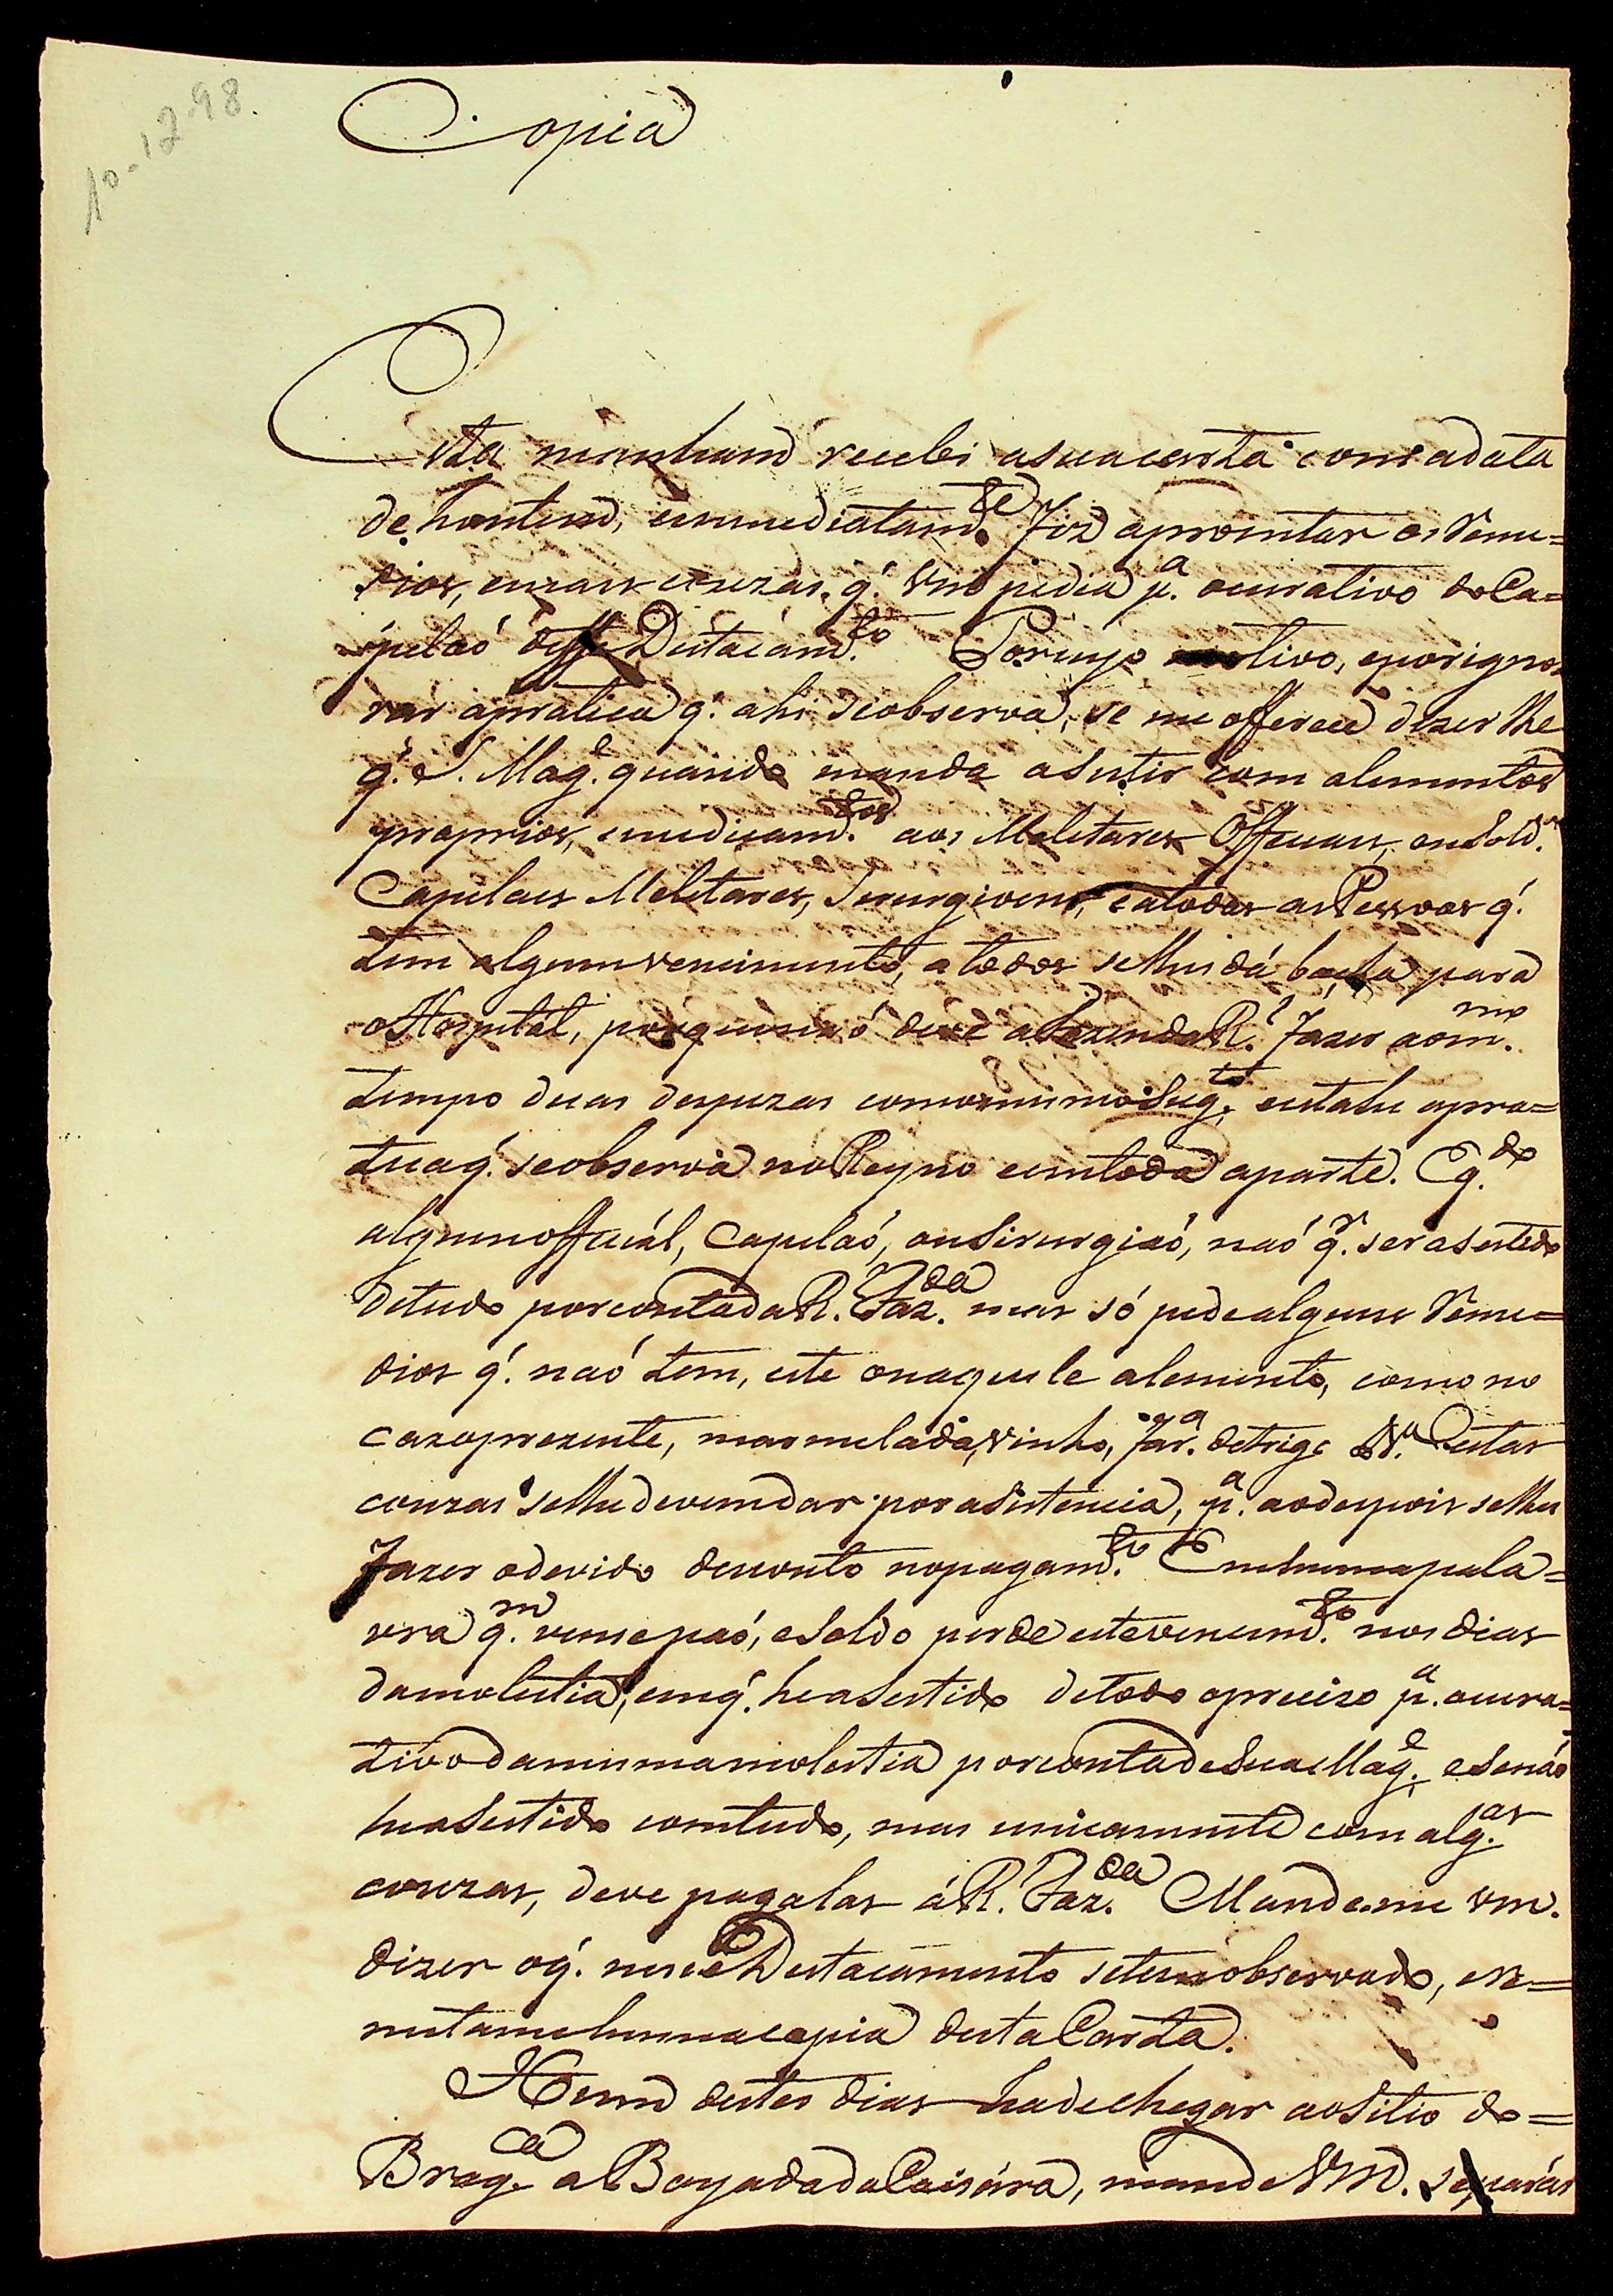 10-12-98.
Copia
Esta manham recebi asuacarta com adata
de hontem, eimmediatam.te Fiz apromtar os Reme=
dios, emais couzas, q.' Vm pedia p.a ocurativo do Ca=
pelaó desse Destacam.to Porcujo motivo, eporigno=
rar apratica q.' ahi seobserva, se me offerece dizer lhe
q.' S. Mag.e quando manda asestir com alementos
proprios, emedicam.tos aos Meletares Officiaes, ouSold.s
Capelaes Meletares, Serurgioens, eatodas asPessoas q.'
tem algum vencimento, atodos selhes dá baicha para
oHospitál, porque naó deve aFazenda R.l Fazer aom.mo
tempo duas despezas comomesmo Sug.to eestahe apra=
tica q.' seobserva noReyno eemtoda aparte. E q.do
algum official, Capelaó, ouSirurgiaó, naó q.r ser asestido
detudo porcontada R. Faz.da mas só pede alguns Reme=
dios q.' naó tem, este ouaquele alemento, como no
cazoprezente, marmelada, vinho, far.a detrigo &.a Estas
couzas selhe devem dar por asistencia, p.a aodepois selhes
Fazer odevido desconto nopagam.to Emhumapala=
vra q.m vencepaó, eSoldo perde estevencim.to nos dias
damolestia, emq.' heasestido detodo opreciso p.a ocura=
tivo damesmamolestia porconta deSua Mag.e, eSenaó
heaSestido comtudo, mas unicamente com alg.as
couzas, deve pagalas áR. Faz.da Mandeme vm.
dizer oq.' nesse Destacamento setem observado, eRe=
metamehumacopia desta Carta.
Hum destes dias hadechegar aoSitio do=
Brag.ca a Boyada da Caisára, mande VM. separár